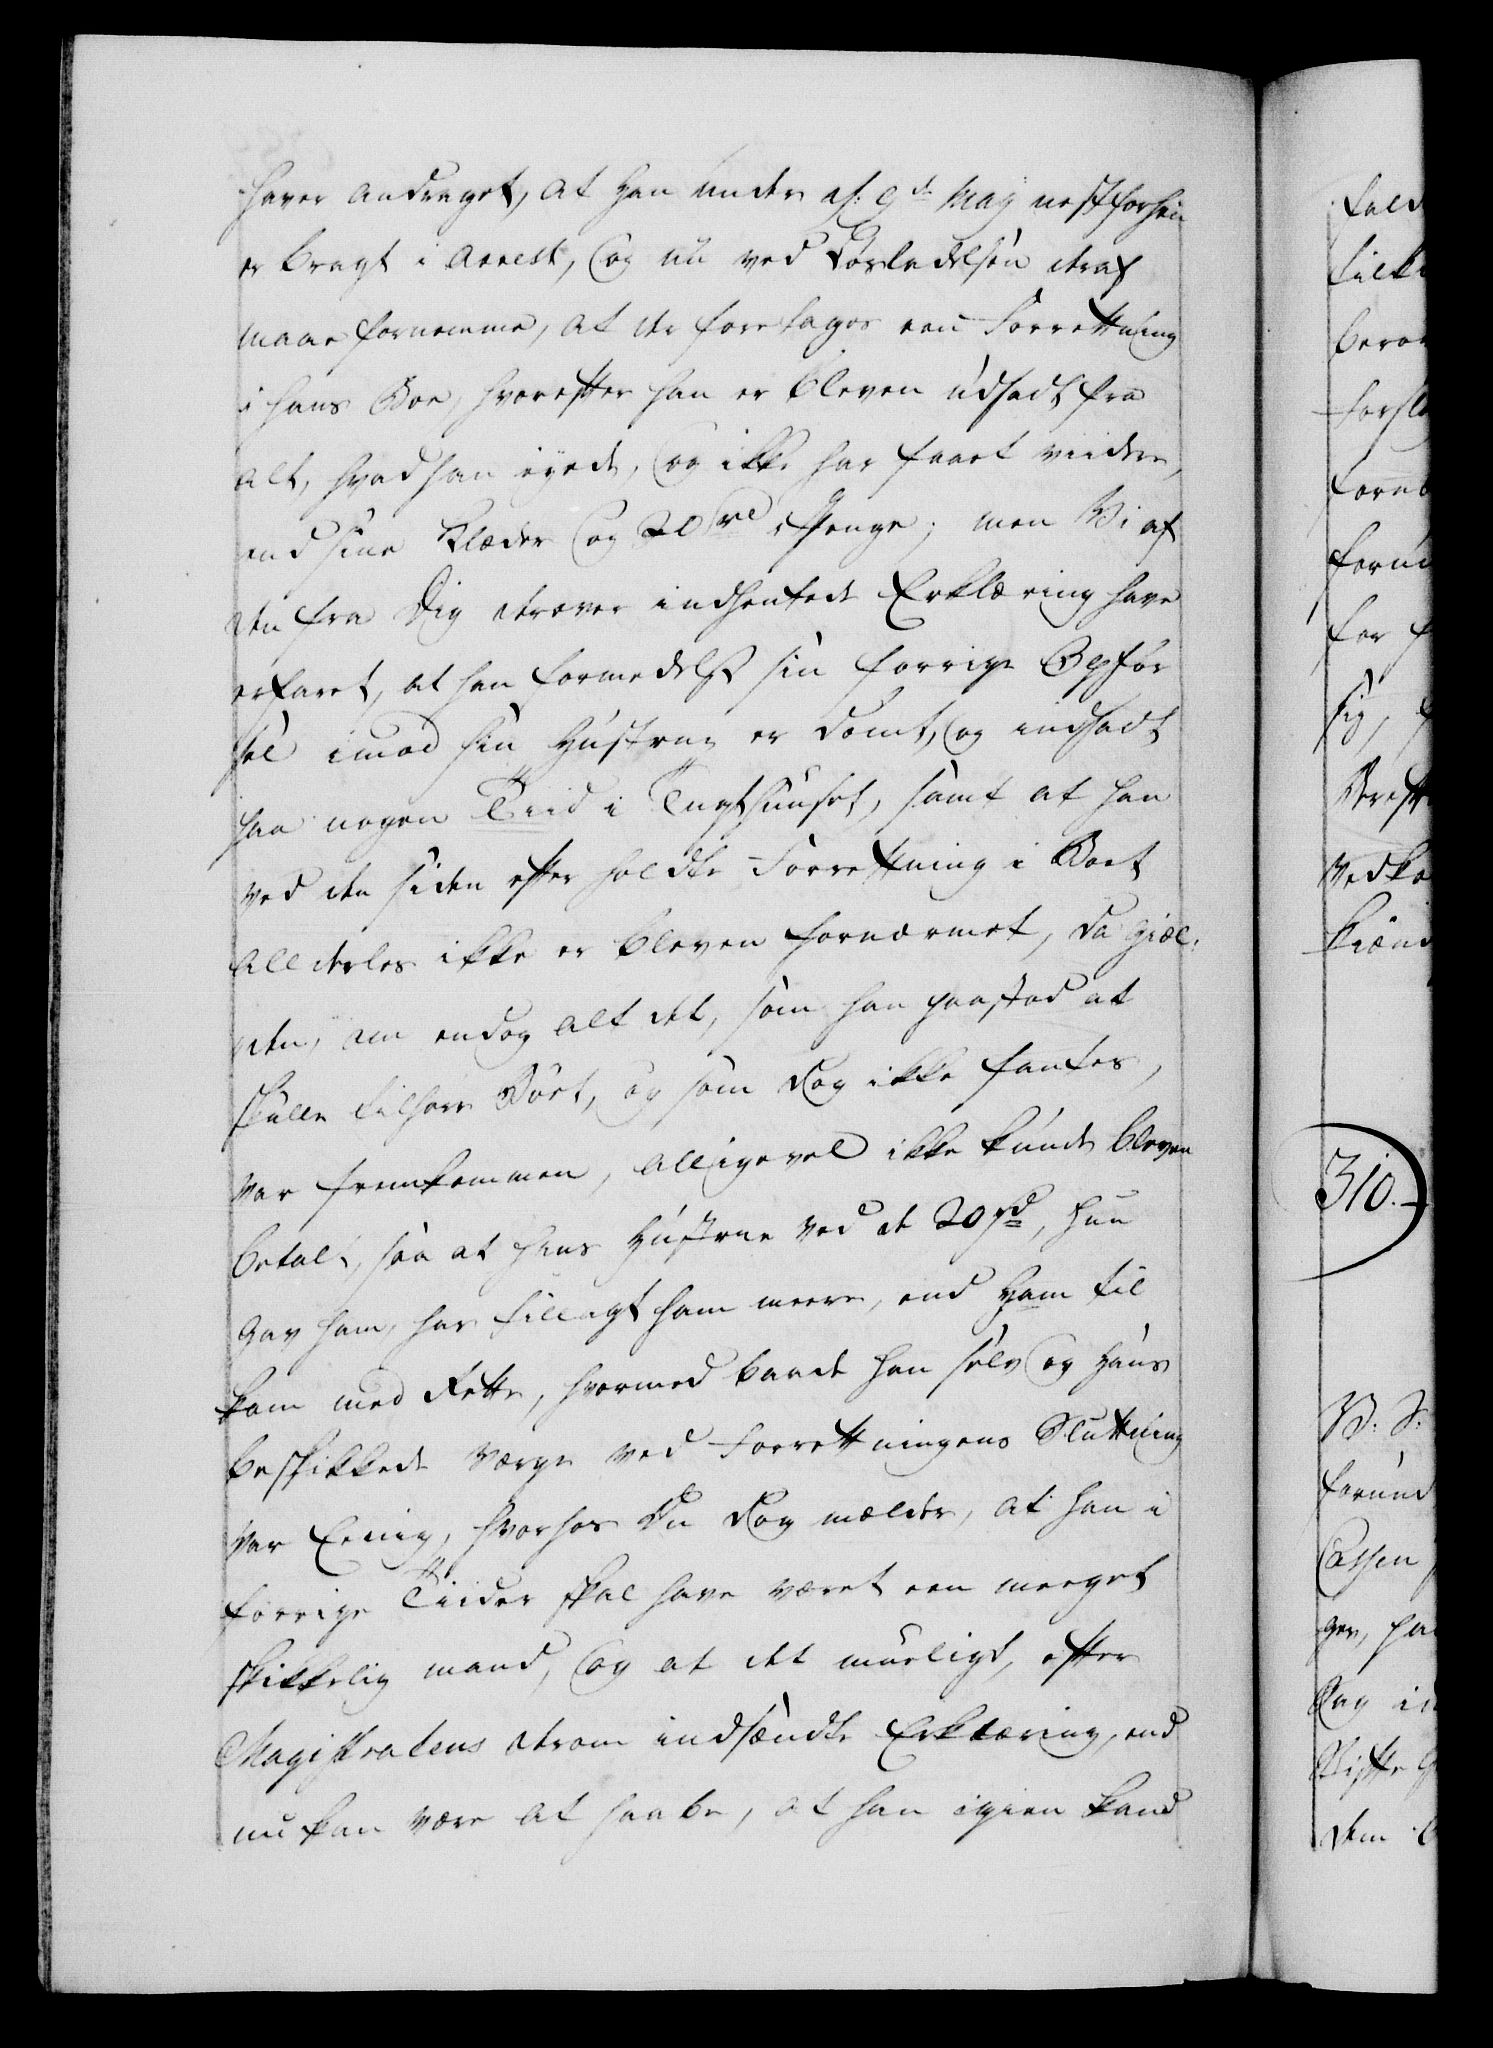 haver andraget, at han under af: 9de Maÿ nestforhen
er bragt i Arrest, og nu ved Løsladelsen deraf
maae fornemme, at der foretages een Forrettning
i hans Boe, hvorefter han er bleven udsadt fra
alt, hvad han eyede, og ikke har faaet viidere,
end sine Klæder og 20 rd Penge; men Vi af
den fra Dig derover indhentede Erklæring have
erfaret, at han formedelst sin forrige Opfør-
sel imod sin Hustrue er dømt, og indsadt
paa nogen Tiid i Tugthuuset, samt at han
ved den siden efter holdte Forrettning i Boet
alldeeles ikke er bleven fornærmet, da Giæl-
den, om endog alt det, som han paastod at
skulle tilhøre Boet, og som dog ikke fantes,
var fremkommen, alligevel ikke kunde bleven
betalt, saa at hans Hustrue ved de 20 rd, hun
gav ham, har tillagt ham meere, end ham til-
kom med Rette, hvormed baade han selv og hans
beskikkede Værge ved Forrettningens Sluttning
var Eenig, hvorhos Du dog melder, at han i
forrige Tiider skal have været een meeget
skikkelig mand, og at det mueligt, efter
Magistratens derom indsendte Erklæring, end-
nu kan være at haabe, at han igien kand
310.